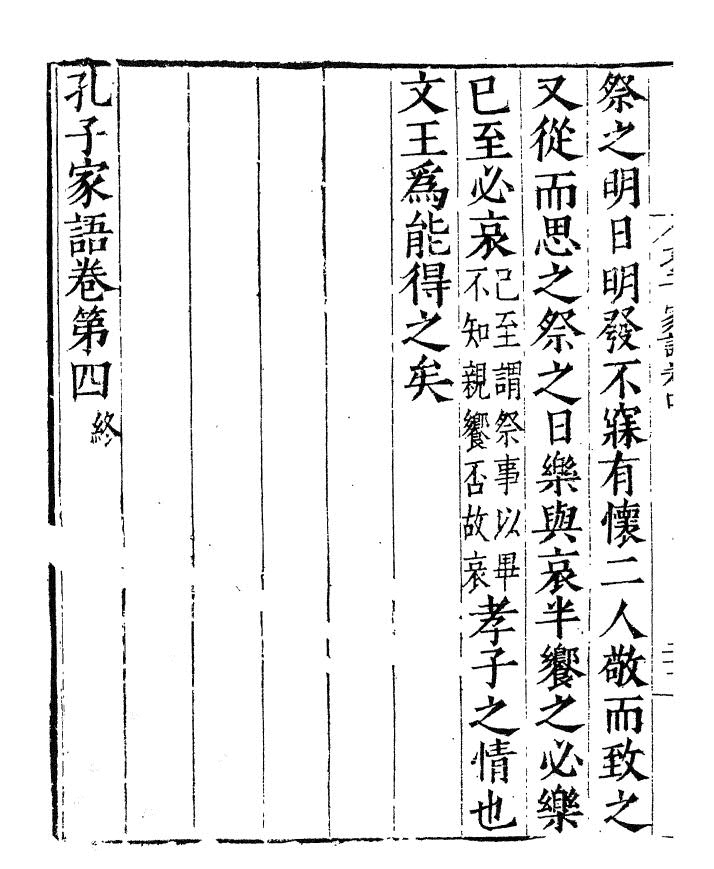 祭之明日明發不寐有懷二人敬而致之
又從而思之祭之日樂與哀半饗之必樂
已至必哀已至謂祭事以畢不知親饗否故哀孝子之情也
文王爲能得之矣
孔子家語卷第四終